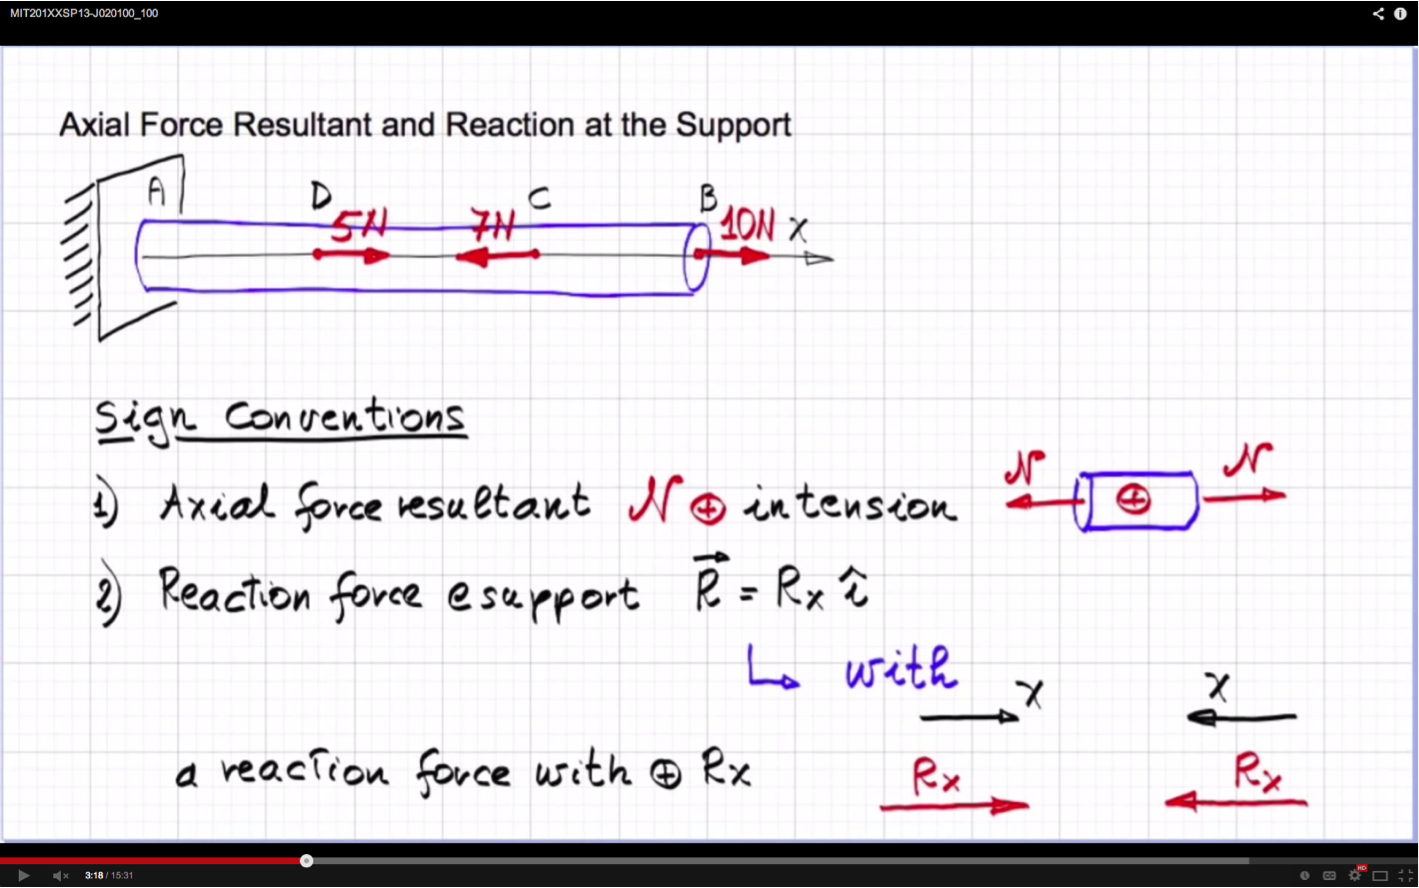 MIT201XXSP13-J020100_100
Axial Force Resultant and Reaction at the Support
A D C B
5N 7N 10N x
Sign Conventions
1) Axial force resultant N ⊕ in tension
N ⊕ N
2) Reaction force @ support R = Rx î
with
x x
a reaction force with ⊕ Rx
Rx Rx
3:18 / 15:31
HD
CC